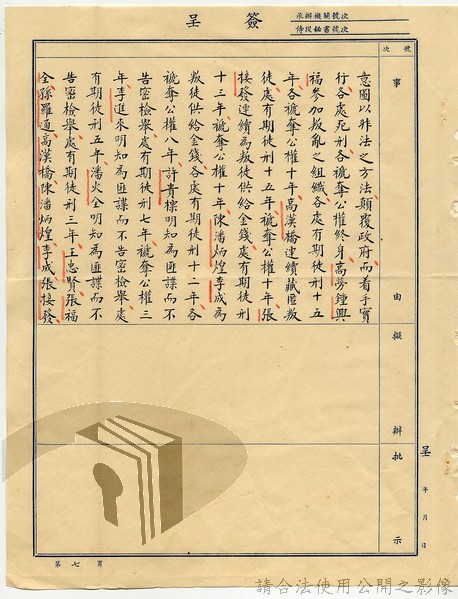 簽呈
承辦機關號次
侍從秘書號次
號次
事由
擬辦
批示
呈 年 月 日
意圖以非法之方法顛覆政府而着手實
行各處死刑各褫奪公權終身高勞鍾興
福參加叛亂之組織各處有期徒刑十五
年各褫奪公權十年高漢橋連續藏匿叛
徒處有期徒刑十五年褫奪公權十年張
接發連續為叛徒供給金錢處有期徒刑
十三年褫奪公權十年陳潘炳煌李成為
叛徒供給金錢各處有期徒刑十二年各
褫奪公權八年許貴標明知為匪諜而不
告密檢舉處有期徒刑七年褫奪公權三
年李進來明知為匪諜而不告密檢舉處
有期徒刑五年潘火全明知為匪諜而不
告密檢舉處有期徒刑三年王忠賢張福
全孫羅通高漢橋陳潘炳煌李成張接發
第七頁
請合法使用公開之影像